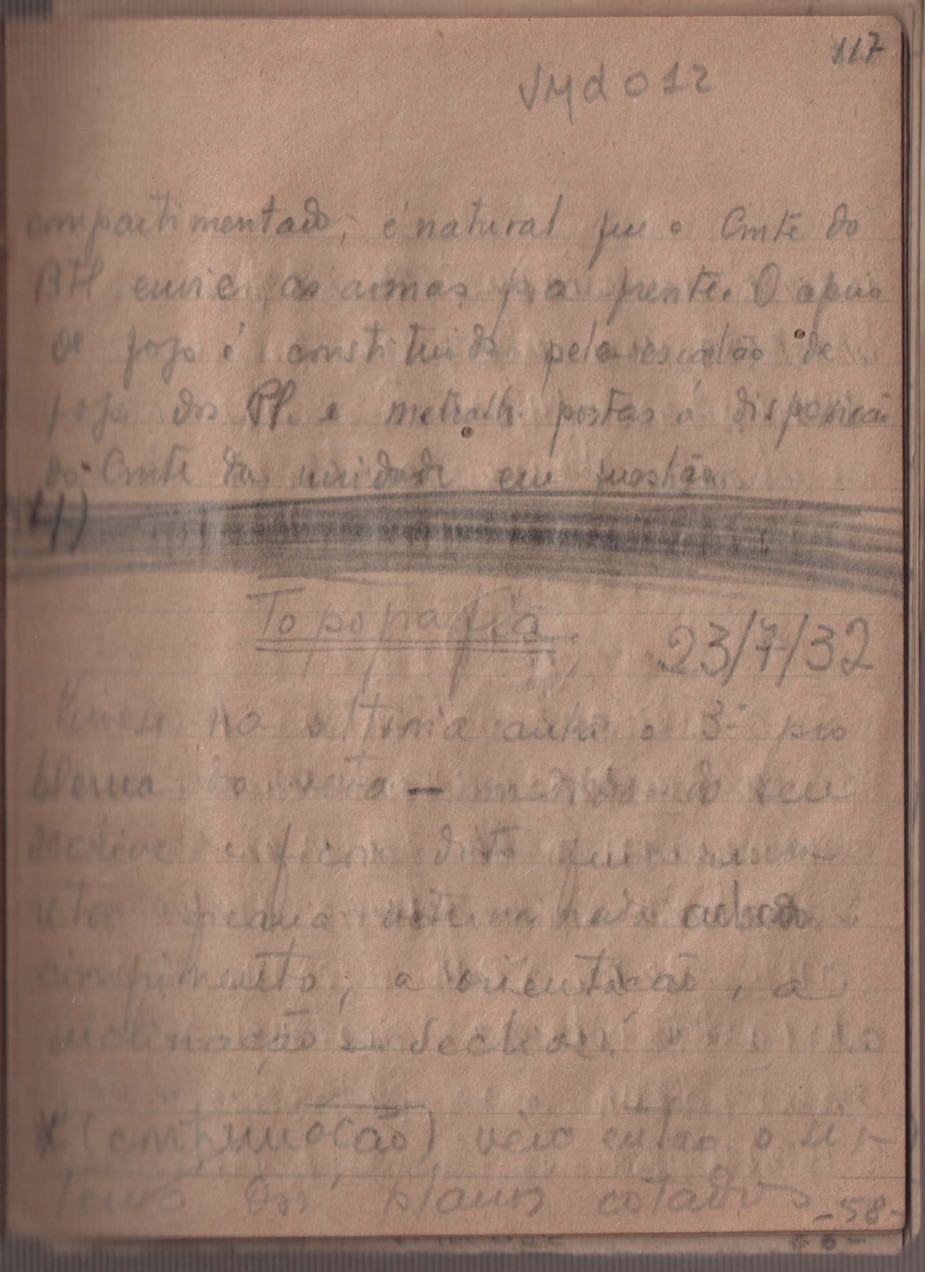 117
JMd012
compartimentado, é natural que o Cmte do
Btl envie as armas p. a frente. O apoio
de fogo é constituido pelo escalão de
fogo dos Pl. e metralh. postas á disposição
do Cmte da unidade em questão
4)
Topografia; 23/7/32
Vimos na ultima aula o 3º pro
blema da reta — do seu
declive e ficou dito que
reta ficaria determinada
comprimento; a orientação, a
inclinação declive.
(continuação) veio então o sis-
tema dos planos cotados
-58-